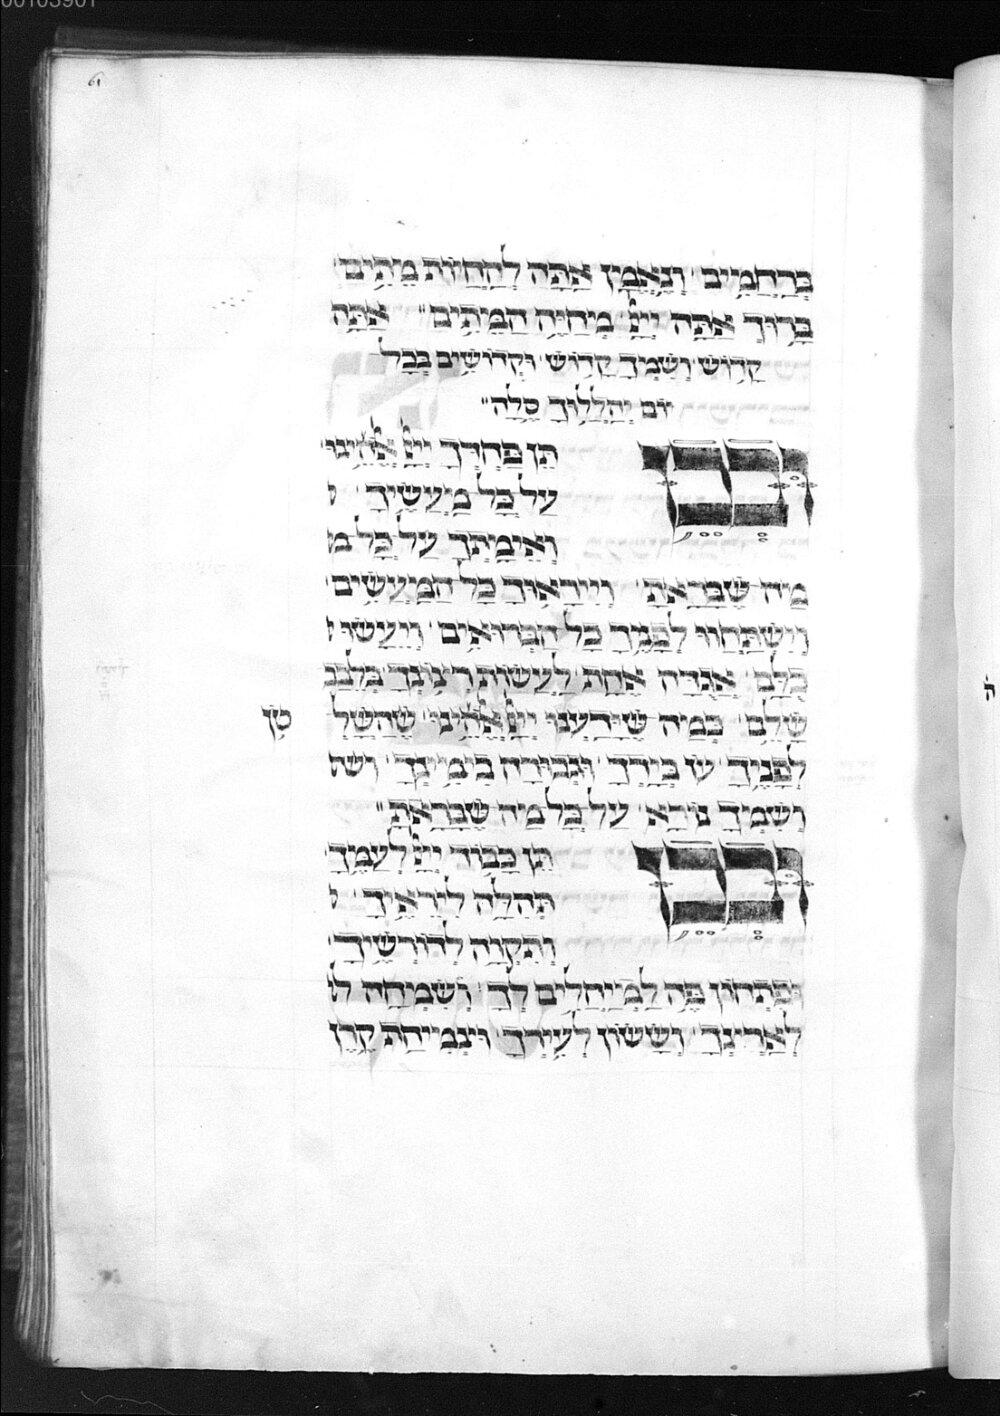 00103901
61
בְּרַחֲמִים׳ וְנֶאֱמָן אַתָּה לְהַחֲיוֹת מֵתִים׳
בָּרוּךְ אַתָּה יְיָ׳ מְחַיֵּה הַמֵּתִים״ אַתָּה
קָדוֹשׁ׳ וְשִׁמְךָ קָדוֹשׁ׳ וּקְדוֹשִׁים בְּכָל
יוֹם יְהַלְלוּךָ סֶּלָה״
וּבְכֵן תֵּן פַּחְדְּךָ יְיָ אֱלֹהֵינוּ׳
עַל כָּל מַעֲשֶׂיךָ׳
וְאֵימָתְךָ עַל כָּל מַ
מַה שֶּׁבָּרָאתָ׳ וְיִירָאוּךָ כָּל הַמַּעֲשִׂים׳
וְיִשְׁתַּחֲווּ לְפָנֶיךָ כָּל הַבְּרוּאִים׳ וְיֵעָשׂוּ
כֻלָּם׳ אֲגֻדָּה אַחַת לַעֲשׂוֹת רְצוֹנְךָ בְּלֵבָב
שָׁלֵם׳ כְּמָה שֶׁיָּדַעְנוּ יְיָ אֱלֹהֵינוּ׳ שֶׁהַשָּׁל טָן
לְפָנֶיךָ׳ עוֹז בְּיָדְךָ׳ וּגְבוּרָה בִּימִינֶךָ׳
וְשִׁמְךָ נוֹרָא׳ עַל כָּל מַה שֶּׁבָּרָאתָ״
וּבְכֵן תֵּן כָּבוֹד יְיָ לְעַמֶּךָ׳
תְּהִלָּה לִירֵאֶיךָ׳
וְתִקְוָה לְדוֹרְשֶׁיךָ׳
וּפִתְחוֹן פֶּה לַמְיַחֲלִים לָךְ׳ וְשִׂמְחָה
לְאַרְצֶךָ׳ וְשָׂשׂוֹן לְעִירֶךָ׳ וּצְמִיחַת קֶרֶן